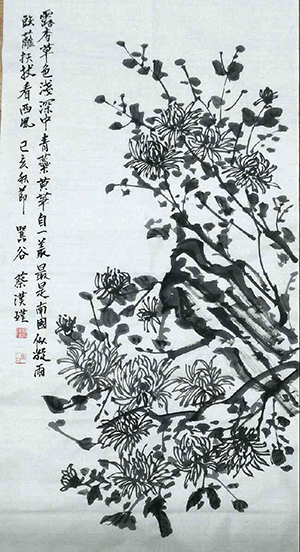 露香草色淺深中青蘂黄華自一叢最是南國似凝雨
欹籬扶杖看西風 己亥秋節 谷 蔡漢瑾